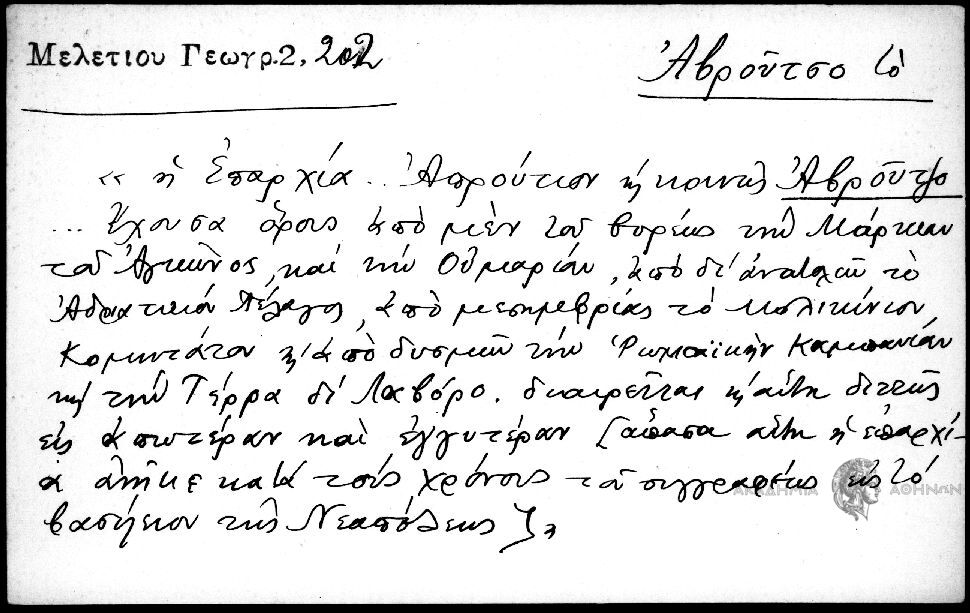 Μελετίου Γεωγρ.2, 202
Ἀβροῦτσο τὸ
« ἡ ἐπαρχία .. Ἀπρούτιον ἢ κοινῶς Ἀβροῦτζο
... ἔχουσα ὅρους ἀπὸ μὲν τοῦ βορέως τὴν Μάρκαν
τοῦ Ἀγκῶνος, καὶ τὴν Οὐμβρίαν, ἀπὸ δ' ἀνατολῶν τὸ
Ἀδριατικὸν πέλαγος, ἀπὸ μεσημβρίας τὸ Μολιτίνιον
Κομιντάτον κ' ἀπὸ δυσμῶν τὴν Ῥωμαϊκὴν Καμπανίαν
καὶ τὴν Τέρρα δί Λαβόρο. διαιρεῖται κ' αὕτη διττῶς
εἰς ἀπωτέραν καὶ ἐγγυτέραν [ἅπασα αὕτη ἡ ἐπαρχί-
α ἀνῆκε κατὰ τοὺς χρόνους τοῦ συγγραφέως εἰς τὸ
βασίλειον τῆς Νεαπόλεως]»
ΑΚΑΔΗΜΙΑ ΑΘΗΝΩΝ